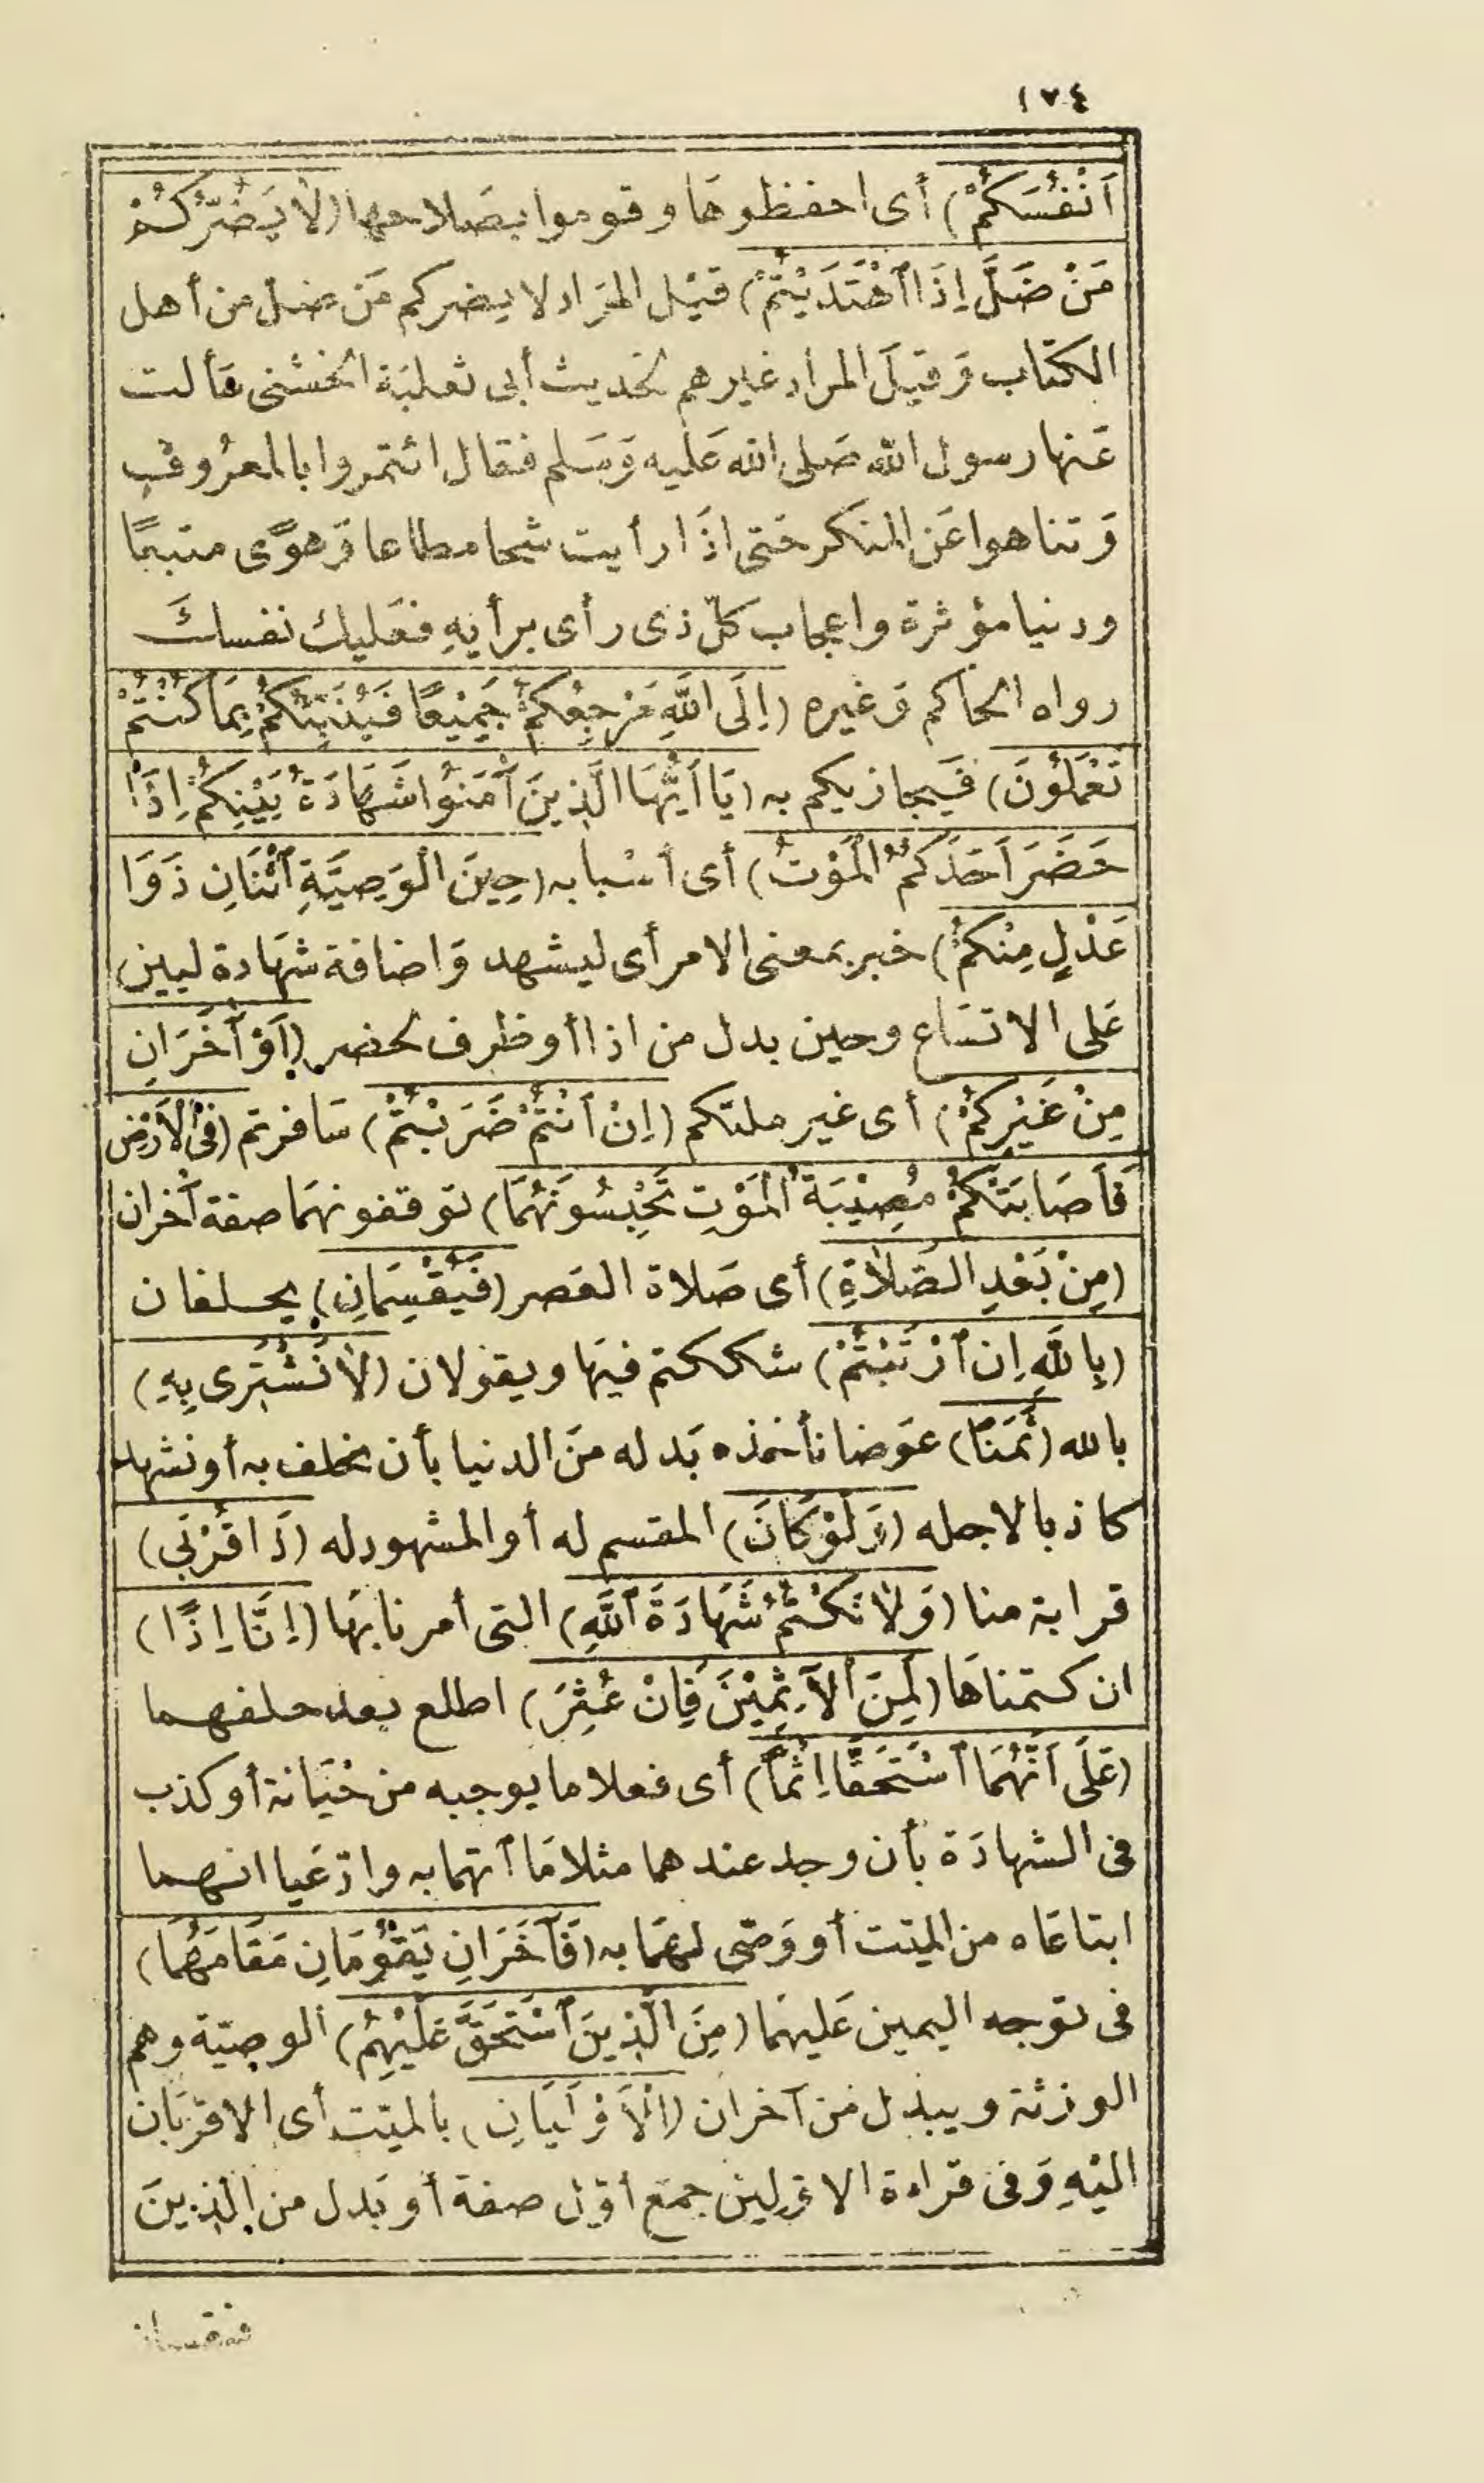 ١٧٤
أَنْفُسَكُمْ) أى احفظوها وقوموا بصلاحها (لَا يَضُرُّكُمْ
مَنْ ضَلَّ إِذَا ٱهْتَدَيْتُمْ) قيل المراد لا يضركم من ضل من أهل
الكتاب وقيل المراد غيرهم لحديث أبى ثعلبة الخشنى سألت
عنها رسول الله صلى الله عليه وسلم فقال ائتمروا بالمعروف
وتناهوا عن المنكر حتى اذا رأيت شحا مطاعا وهوى متبعا
ودنيا مؤثرة واعجاب كل ذى رأى برأيه فعليك نفسك
رواه الحاكم وغيره (إِلَى ٱللَّهِ مَرْجِعُكُمْ جَمِيْعًا فَيُنَبِّئُكُمْ بِمَا كُنْتُمْ
تَعْمَلُونَ) فيجازيكم به (يَا أَيُّهَا الَّذِينَ آمَنُوا شَهَادَةُ بَيْنِكُمْ إِذَا
حَضَرَ أَحَدَكُمُ الْمَوْتُ) أى أسبابه (حِينَ الْوَصِيَّةِ ٱثْنَانِ ذَوَا
عَدْلٍ مِنْكُمْ) خبر بمعنى الامر أى ليشهد واضافة شهادة لبين
على الاتساع وحين بدل من اذا أو ظرف لحضر (أَوْ آخَرَانِ
مِنْ غَيْرِكُمْ) أى غير ملتكم (إِنْ أَنْتُمْ ضَرَبْتُمْ) سافرتم (فِى الْأَرْضِ
فَأَصَابَتْكُمْ مُصِيْبَةُ الْمَوْتِ تَحْبِسُونَهُمَا) توقفونهما صفة آخران
(مِنْ بَعْدِ الصَّلَاةِ) أى صلاة العصر (فَيُقْسِمَانِ) يحلفان
(بِاللَّهِ إِنِ ٱرْتَبْتُمْ) شككتم فيها ويقولان (لَا نَشْتَرِى بِهِ)
بالله (ثَمَنًا) عوضا نأخذه بدله من الدنيا بأن نحلف به أو نشهد
كاذبا لاجله (وَلَوْ كَانَ) المقسم له أو المشهود له (ذَا قُرْبَى)
قرابة منا (وَلَا نَكْتُمُ شَهَادَةَ ٱللَّهِ) التى أمرنا بها (إِنَّا إِذًا)
ان كتمناها (لَمِنَ ٱلْآثِمِيْنَ فَإِنْ عُثِرَ) اطلع بعد حلفهما
(عَلَى أَنَّهُمَا ٱسْتَحَقَّا إِثْمًا) أى فعلا ما يوجبه من خيانة أو كذب
فى الشهادة بأن وجد عندهما مثلا ما ٱتهما به وادّعيا انهما
ابتاعاه من الميّت أو وصّى لهما به (فَآخَرَانِ يَقُوْمَانِ مَقَامَهُمَا)
فى توجه اليمين عليهما (مِنَ الَّذِينَ ٱسْتُحِقَّ عَلَيْهِمُ) الوصيّة وهم
الورثة ويبدل من آخران (الْأَوْلَيَانِ) بالميّت أى الاقربان
اليه وفى قراءة الاوّلين جمع أوّل صفة أو بدل من الذين
فيقسمان